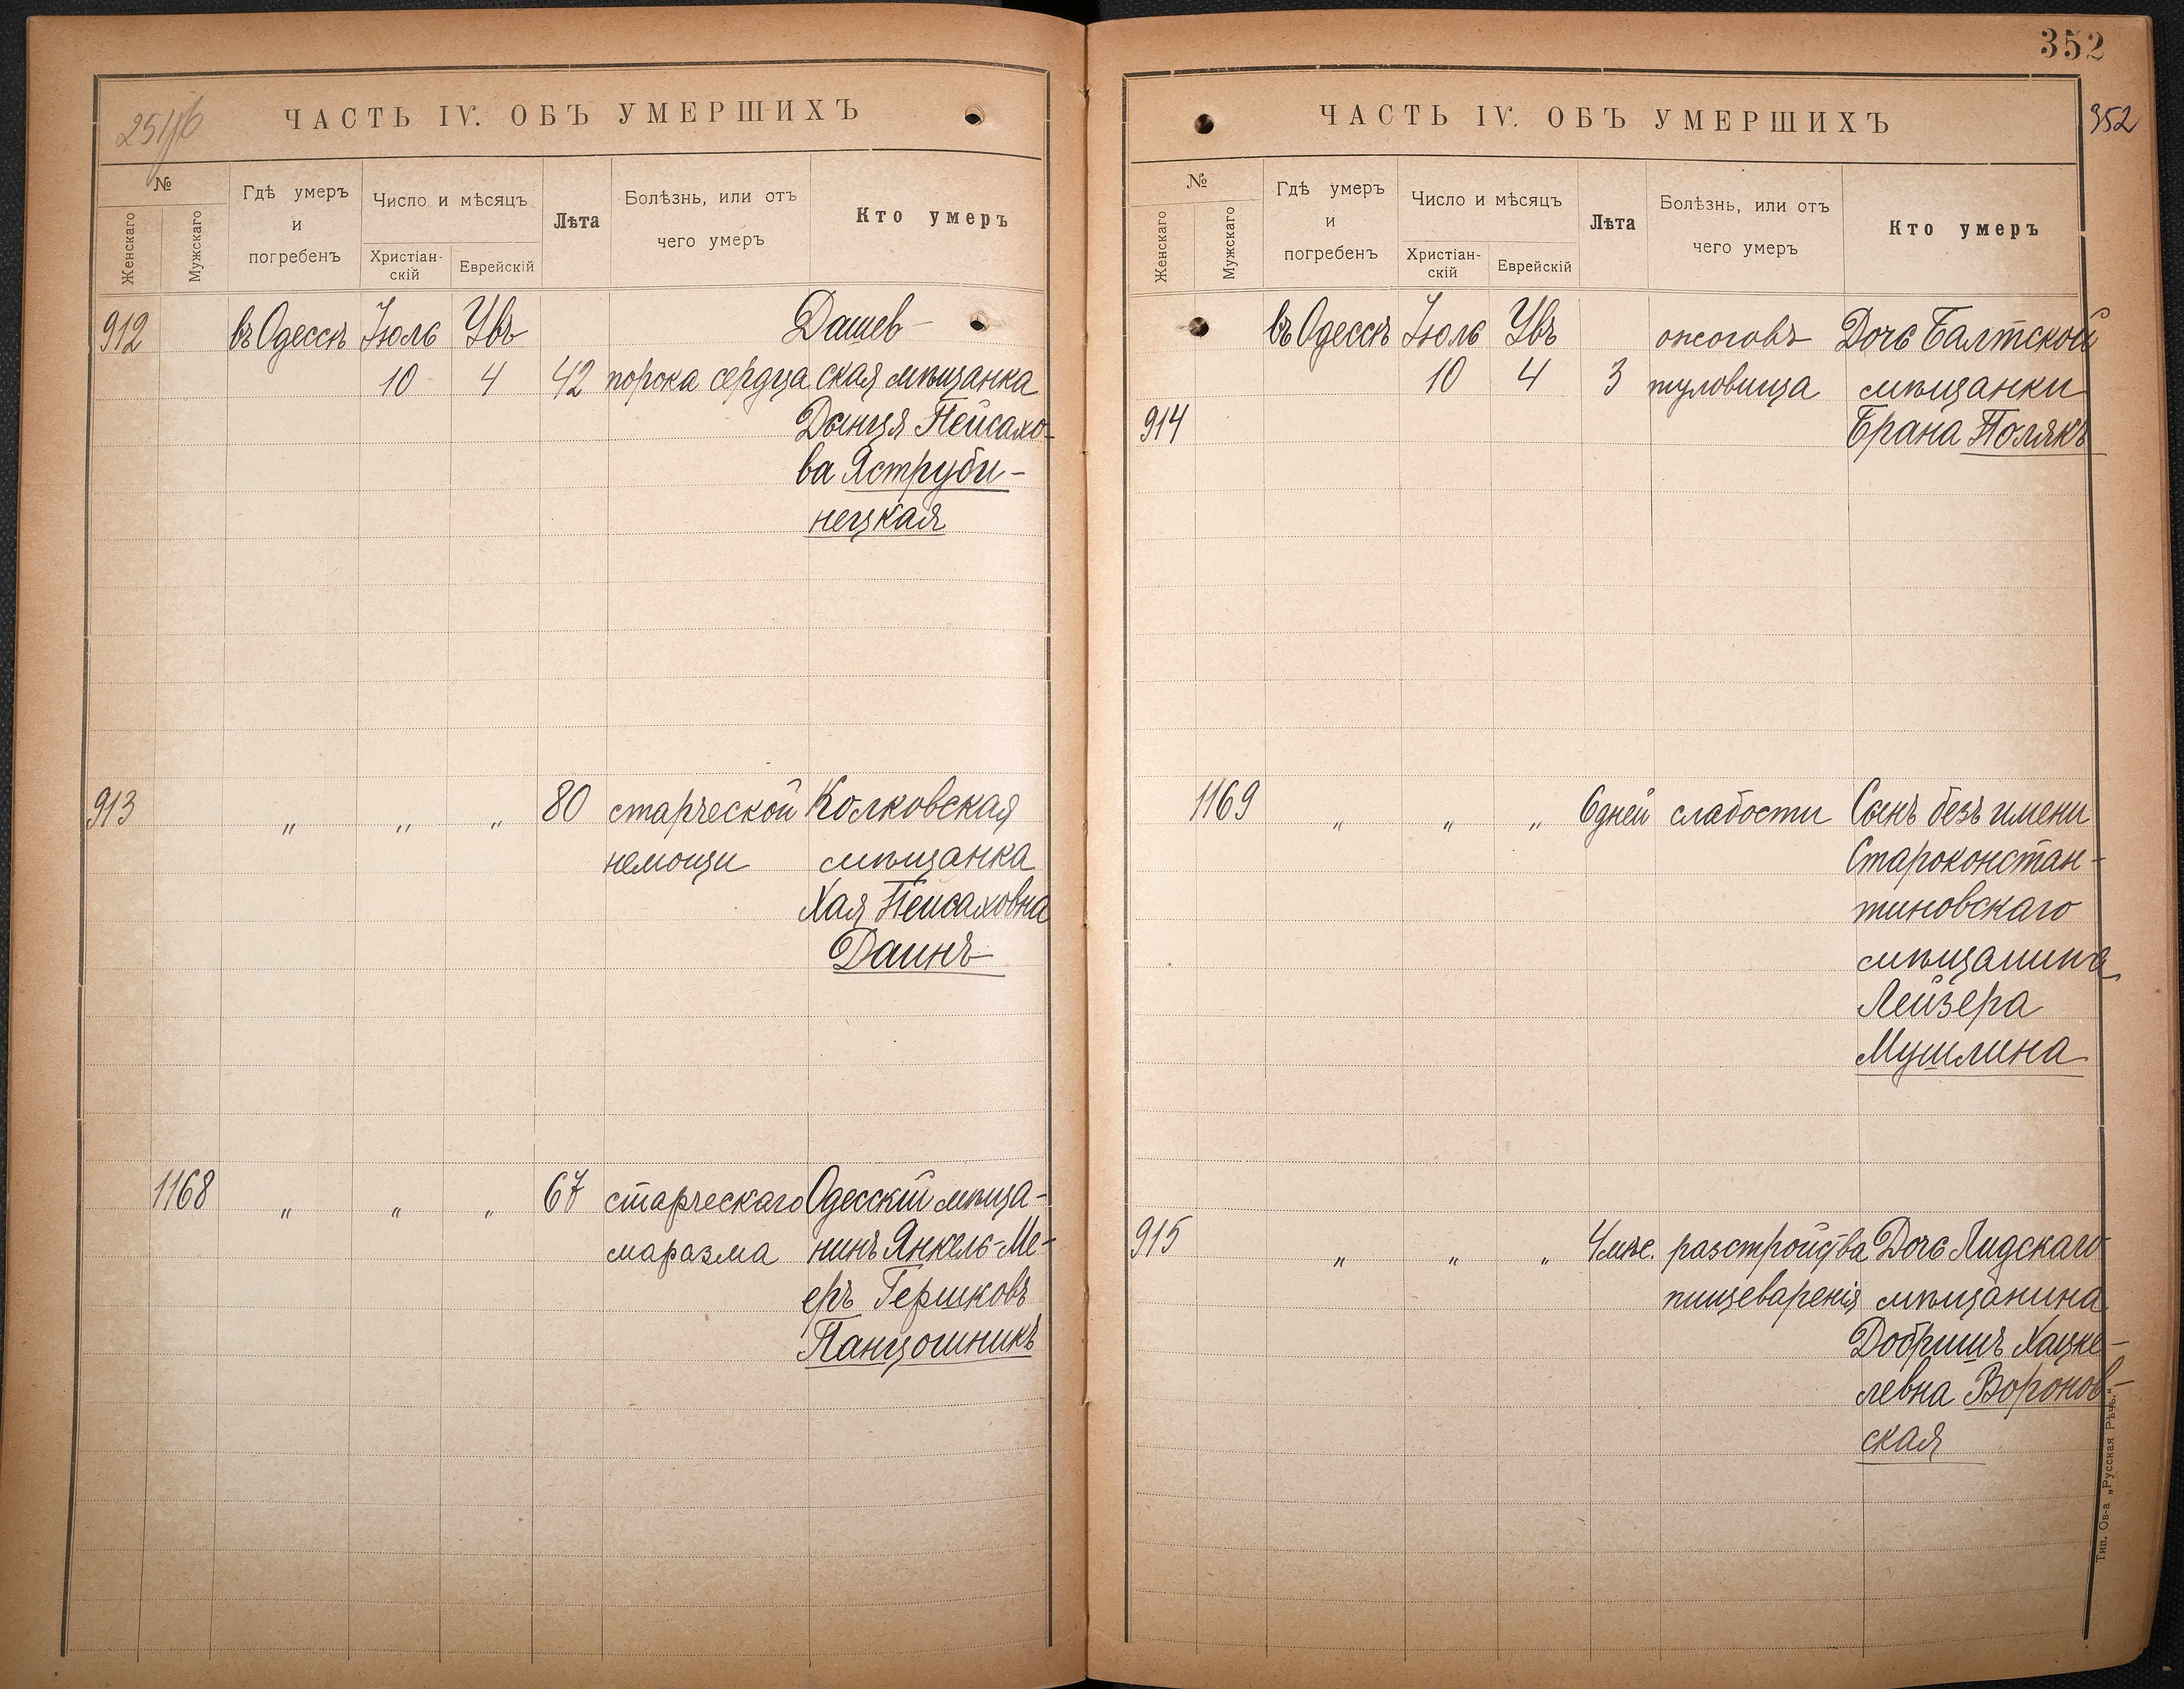 25116
ЧАСТЬ IV. ОБЪ УМЕРШИХЪ
№
Женскаго
Мужскаго
Гдѣ умеръ
и
погребенъ
Число и мѣсяцъ
Христіан-
скій
Еврейскій
Лѣта
Болѣзнь, или отъ
чего умеръ
Кто умеръ
912 въ Одессѣ Іюль Увъ Дашев-
10 4 42 порока сердца ская мѣщанка
Дынця Пейсахо-
ва Яструби-
нецкая
913 " " " 80 старческой Колковская
немощи мѣщанка
Хая Пейсаховна
Даинъ
1168 " " " 67 старческаго Одесскій мѣща-
маразма нинъ Янкель-Ме-
еръ Гершковъ
Панцошникъ
352
352
ЧАСТЬ IV. ОБЪ УМЕРШИХЪ
№
Женскаго
Мужскаго
Гдѣ умеръ
и
погребенъ
Число и мѣсяцъ
Христіан-
скій
Еврейскій
Лѣта
Болѣзнь, или отъ
чего умеръ
Кто умеръ
въ Одессѣ Іюль Увъ ожоговъ Дочь Балтской
10 4 3 туловища мѣщанки
914 Брана Полякъ
1169 " " " 6 дней слабости Сынъ безъ имени
Староконстан-
тиновскаго
мѣщанина
Лейзера
Мушлина
915 " " " 4 мѣс. разстройства Дочь Лидскаго
пищеваренія мѣщанина
Добришъ Хацке-
левна Воронов-
ская
Тип. Ов-а „Русская Рѣчь."